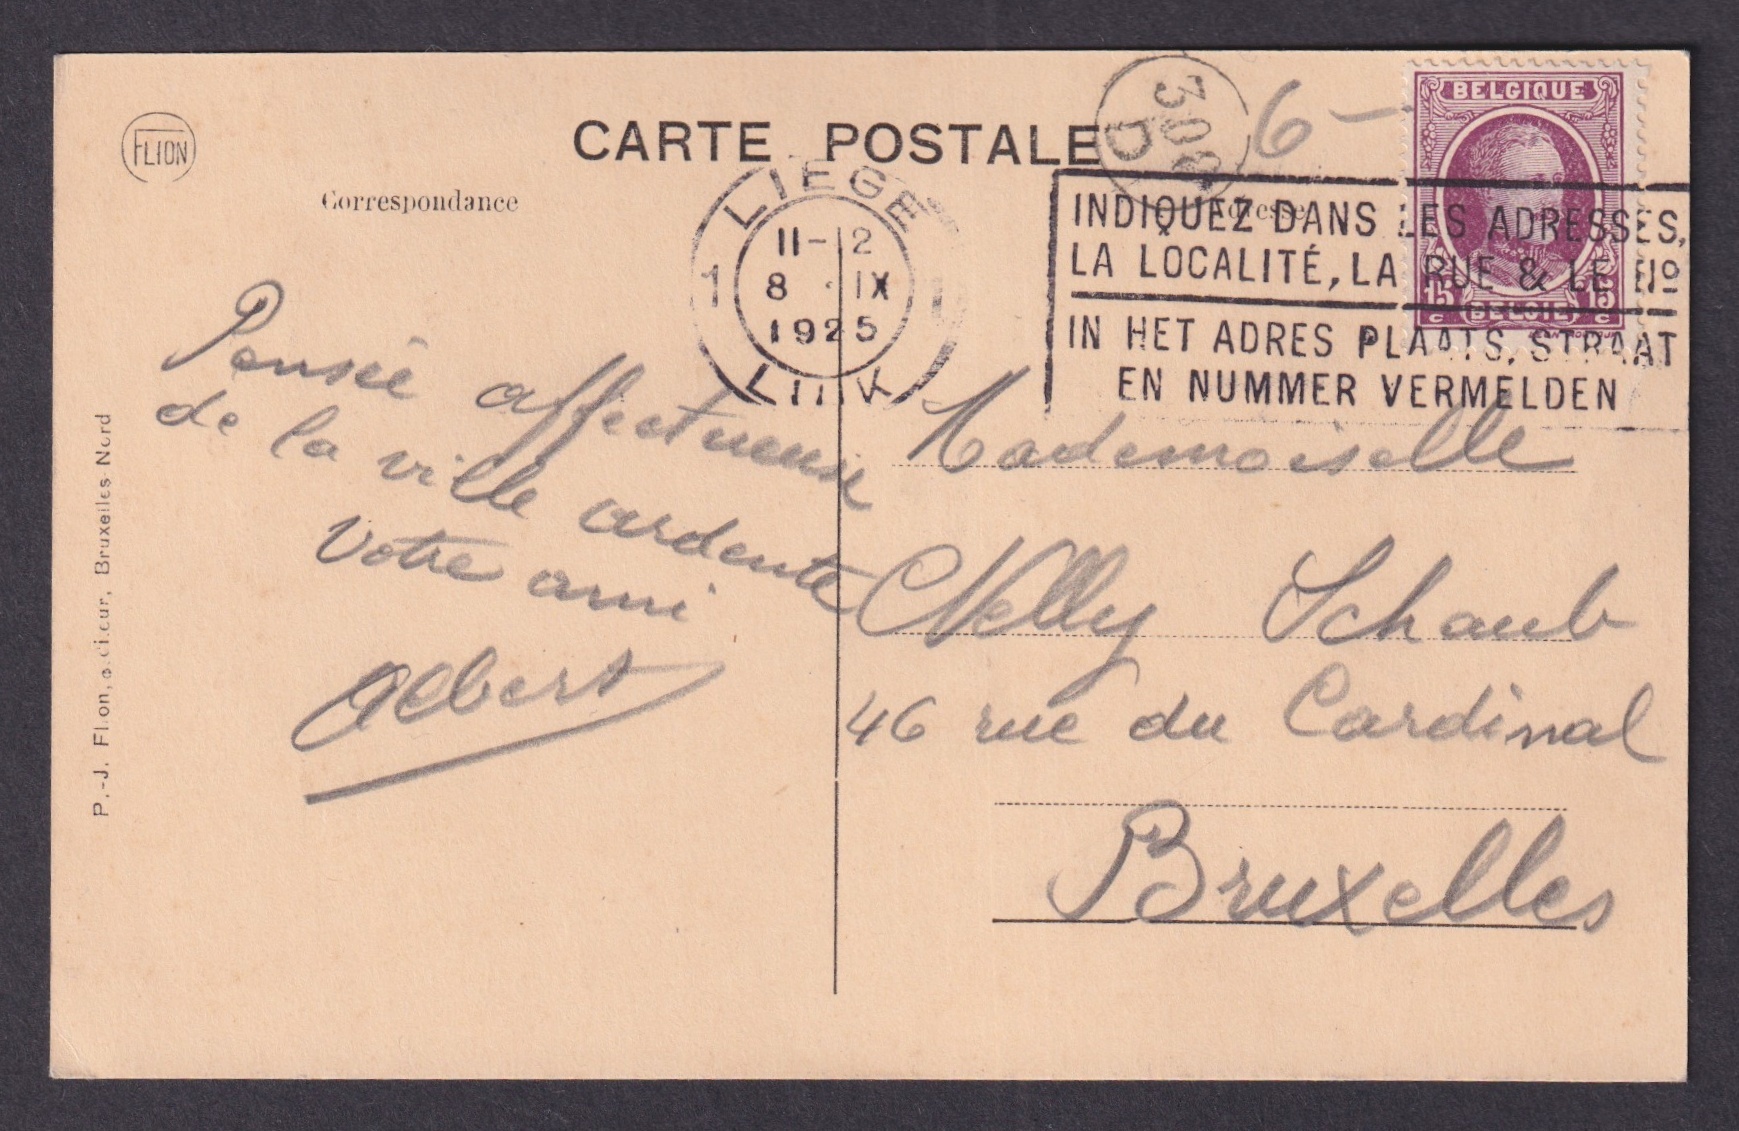 FLION
CARTE POSTALE
Correspondance
6 –
BELGIQUE
15 c 15 c
BELGIË
LIEGE
1 1
11-12
8 · IX
1925
LUIK
INDIQUEZ DANS LES ADRESSES,
LA LOCALITÉ, LA RUE & LE Nº
IN HET ADRES PLAATS, STRAAT
EN NUMMER VERMELDEN
Pensée affectueuse
de la ville ardente
Votre ami
Albert
Mademoiselle
Nelly Schaub
46 rue du Cardinal
Bruxelles
P.-J. Flion, editeur, Bruxelles Nord